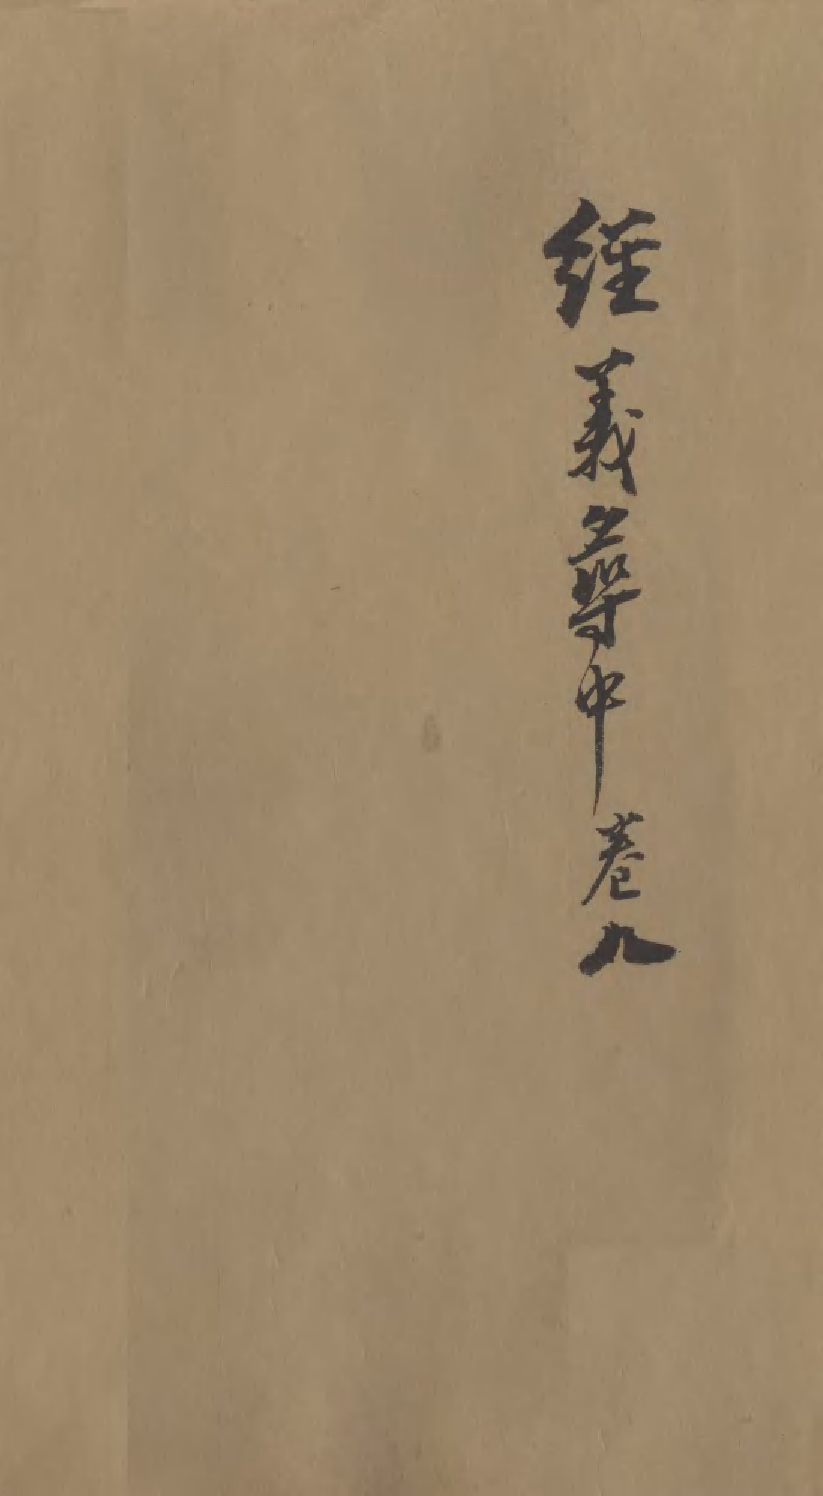 經義尋中卷九